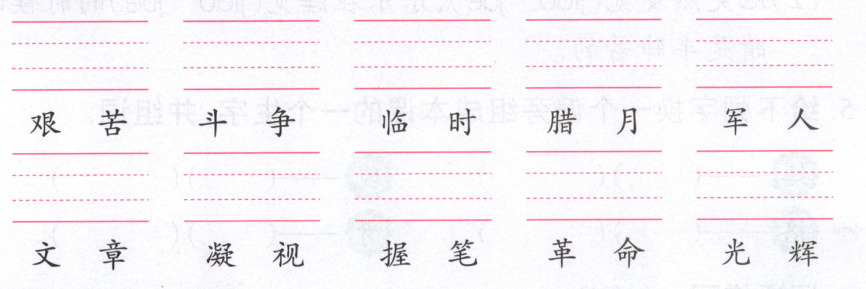 艰 苦 斗 争 临 时 腊 月 军 人
文 章 凝 视 握 笔 革 命 光 辉